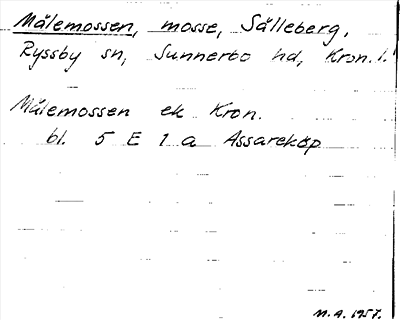 Målemossen, mosse, Sälleberg,
Ryssby sn, Sunnerbo hd, Kron. l.
Målemossen ek Kron.
bl. 5 E 1 a Assareköp
M.A. 1957.